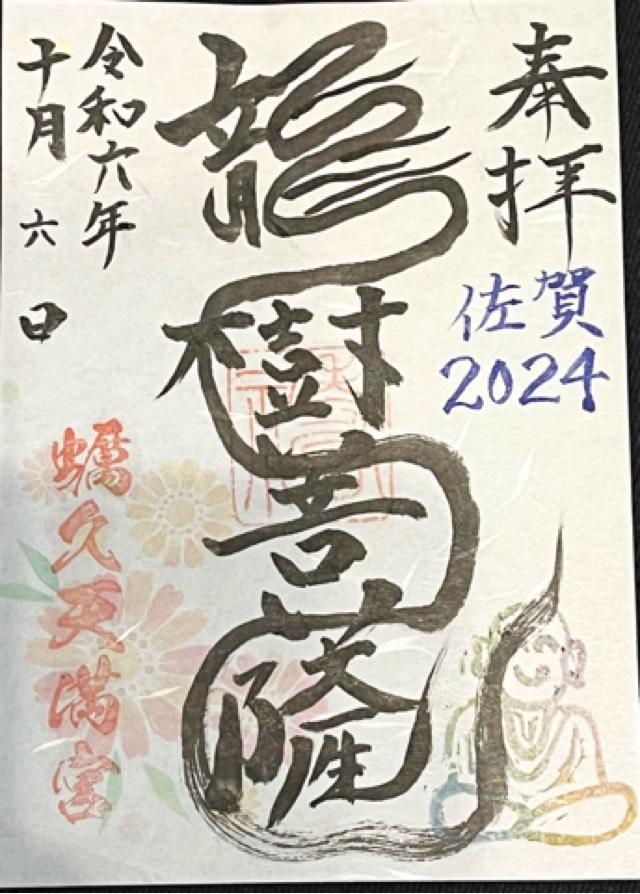 奉拝
佐賀
2024
龍樹菩薩
令和六年
十月六日
蠣久天満宮